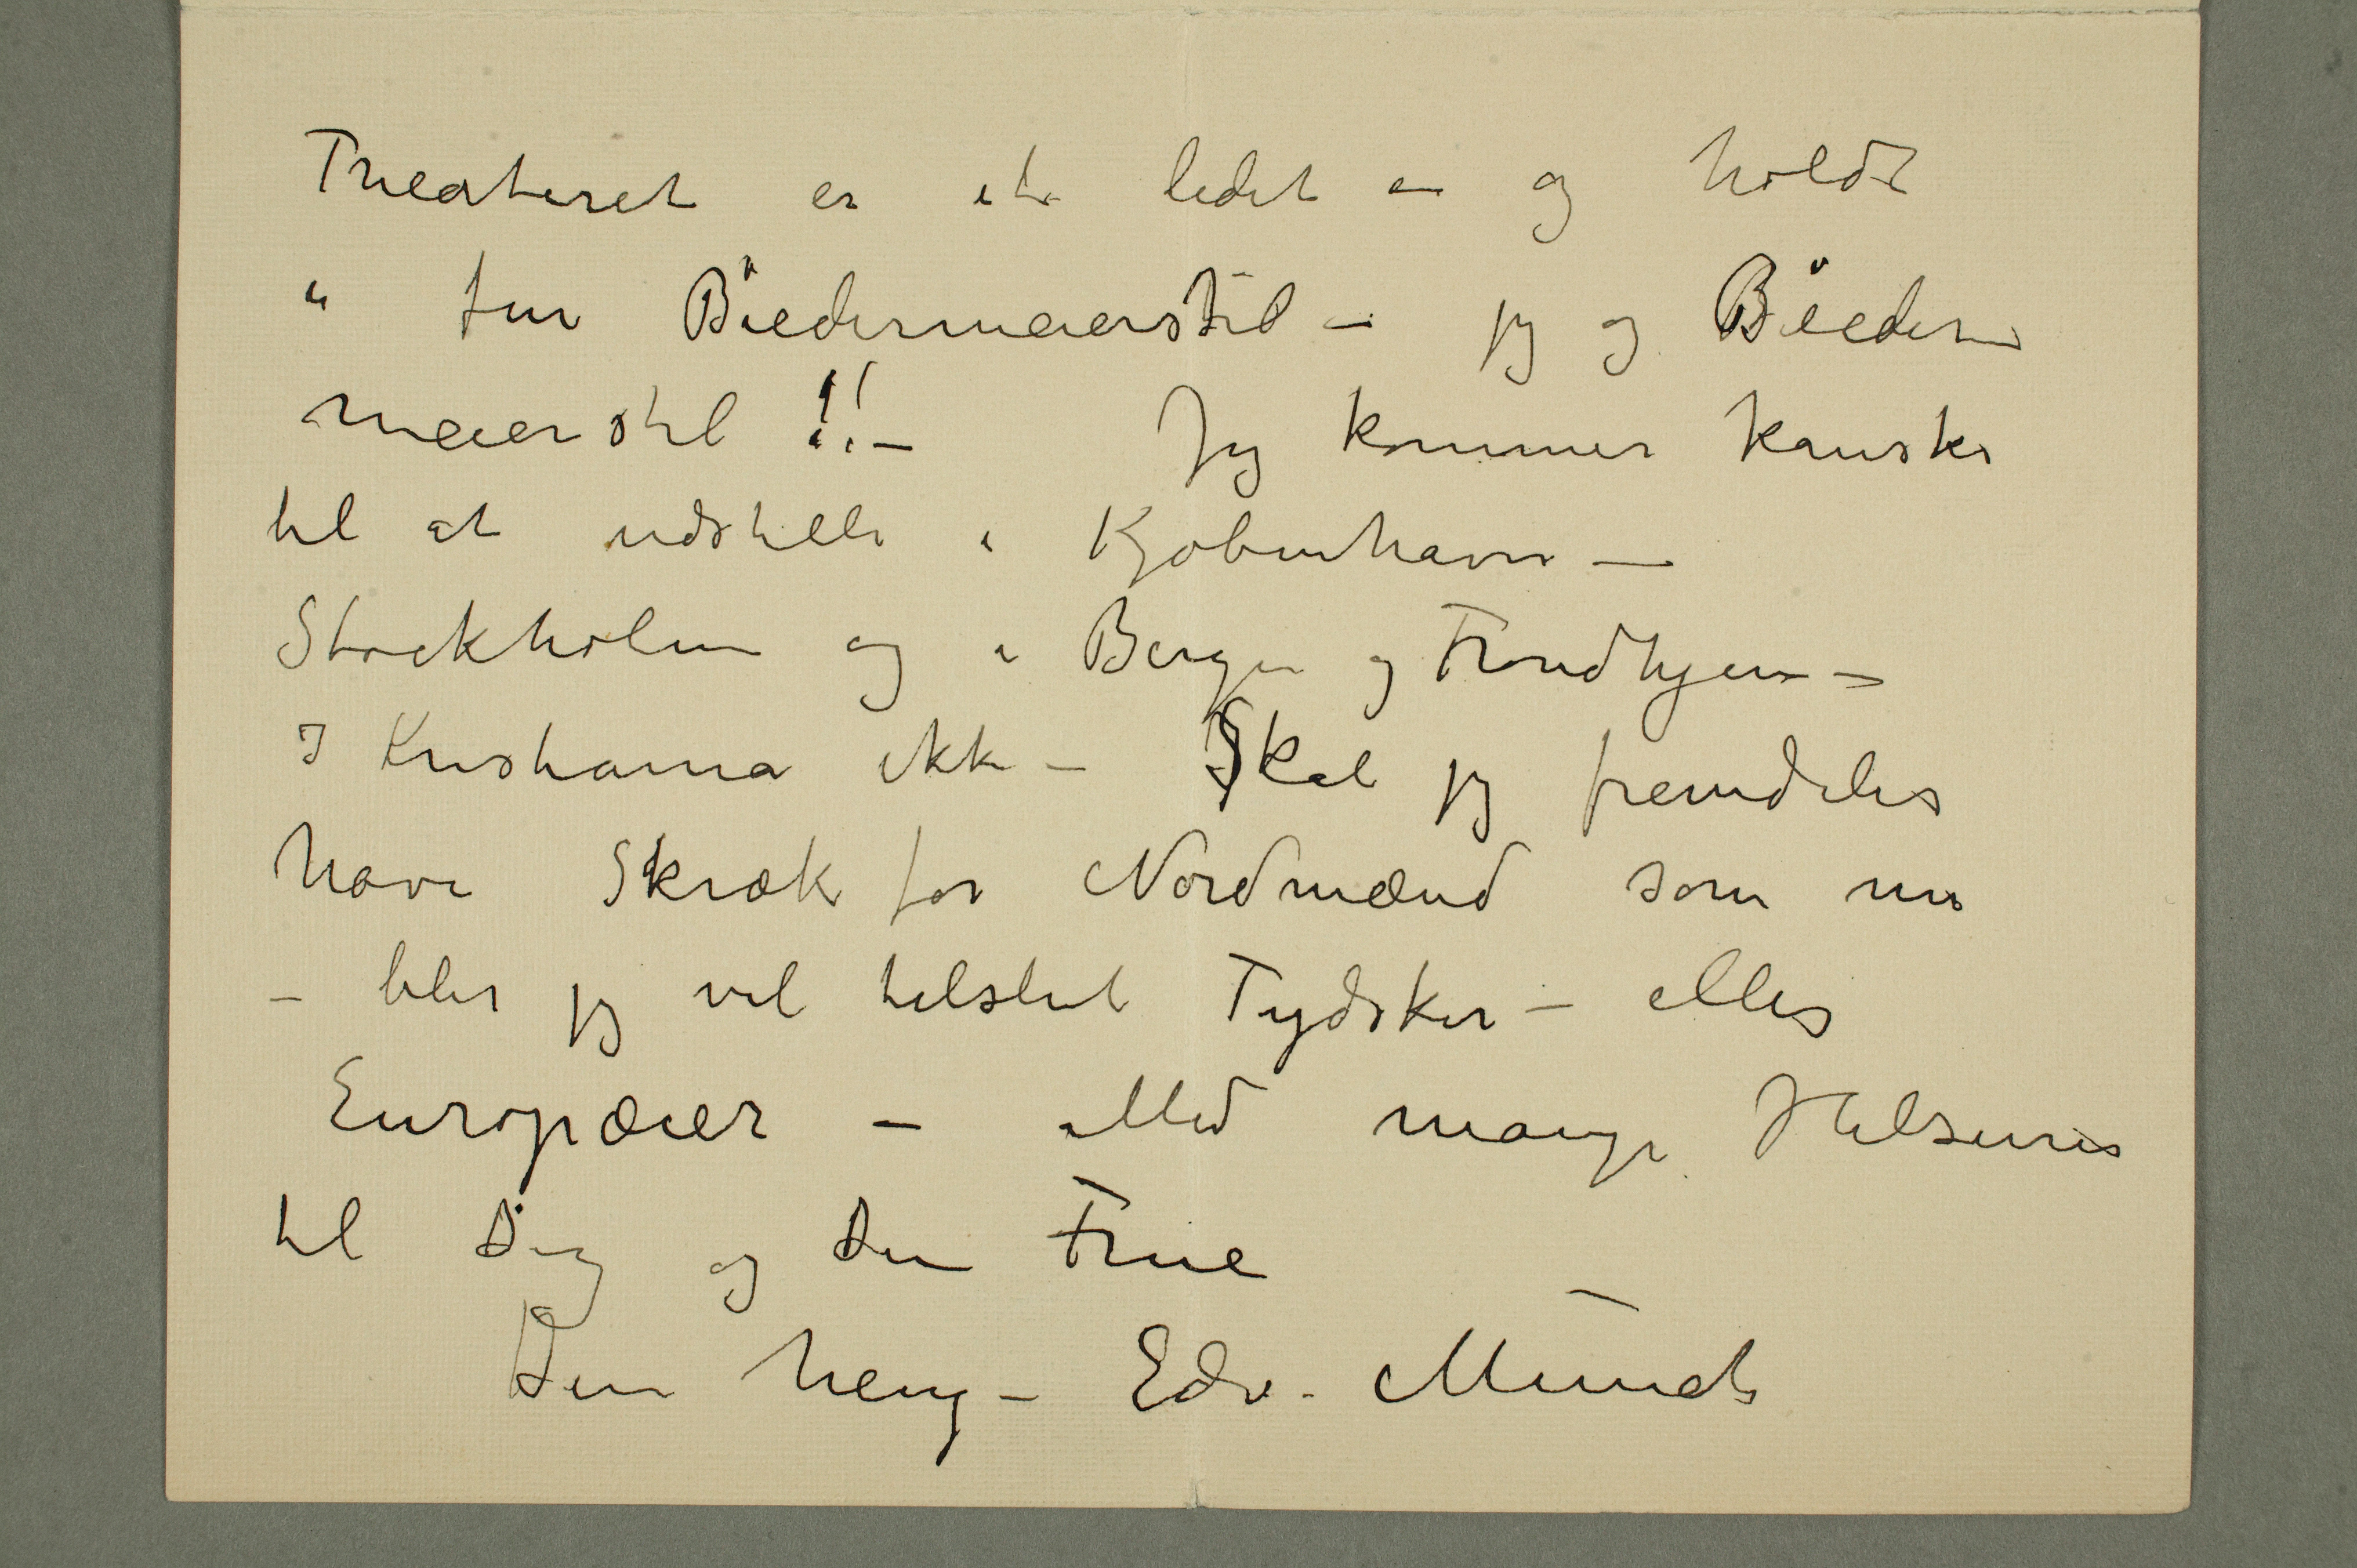 Theateret er et ledet – og holdt
i fin Biedermeierstil – jeg og Bieder-
meierstil !! – Jeg kommer kanske
til at udstille i Kjøbenhavn –
Stockholm og i Bergen og Trondhjem –
I Kristiania ikke – Skal jeg fremdeles
have Skræk for Nordmænd som nu
– blir jeg vel tilslut Tydsker – eller
Europæier – Med mange Hilsener
til Dig og Din Frue
Din heng – Edv. Munch